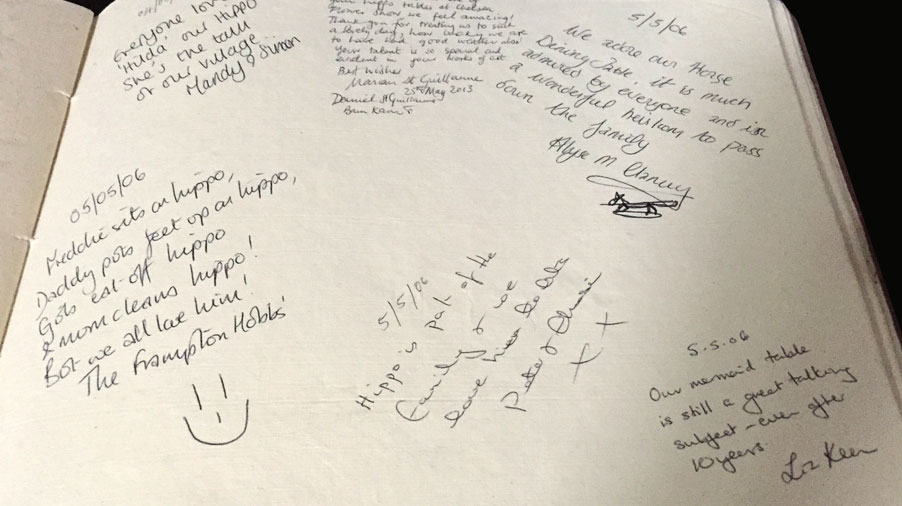 Everyone love
'Hilda' our Hippo
She's the talk
of our village
Mandy & Simon
tables at Chelsea
Flower Show we feel amazing!
Thank you for treating us to such
a lovely day, how lucky we are
to have had good weather also
Your talent is so special and
evident in your works of art
Best Wishes
Marian St Guillaume
25th May 2013
Daniel St Guillaume
5/5/06
We adore our Horse
Dining Table. it is much
admired by everyone and is
a wonderful heirloom to pass
down the family
05/05/06
Freddie sits on hippo,
Daddy puts feet up on hippo,
Gots eat off hippo
& mom cleans hippo!
But we all love him!
The Frampton Hobbs'
5/5/06
Hippo is part of the
family & we
love him
Peter &
X X
5.5.06
Our mermaid table
is still a great talking
subject - even after
10 years
Liz Keen